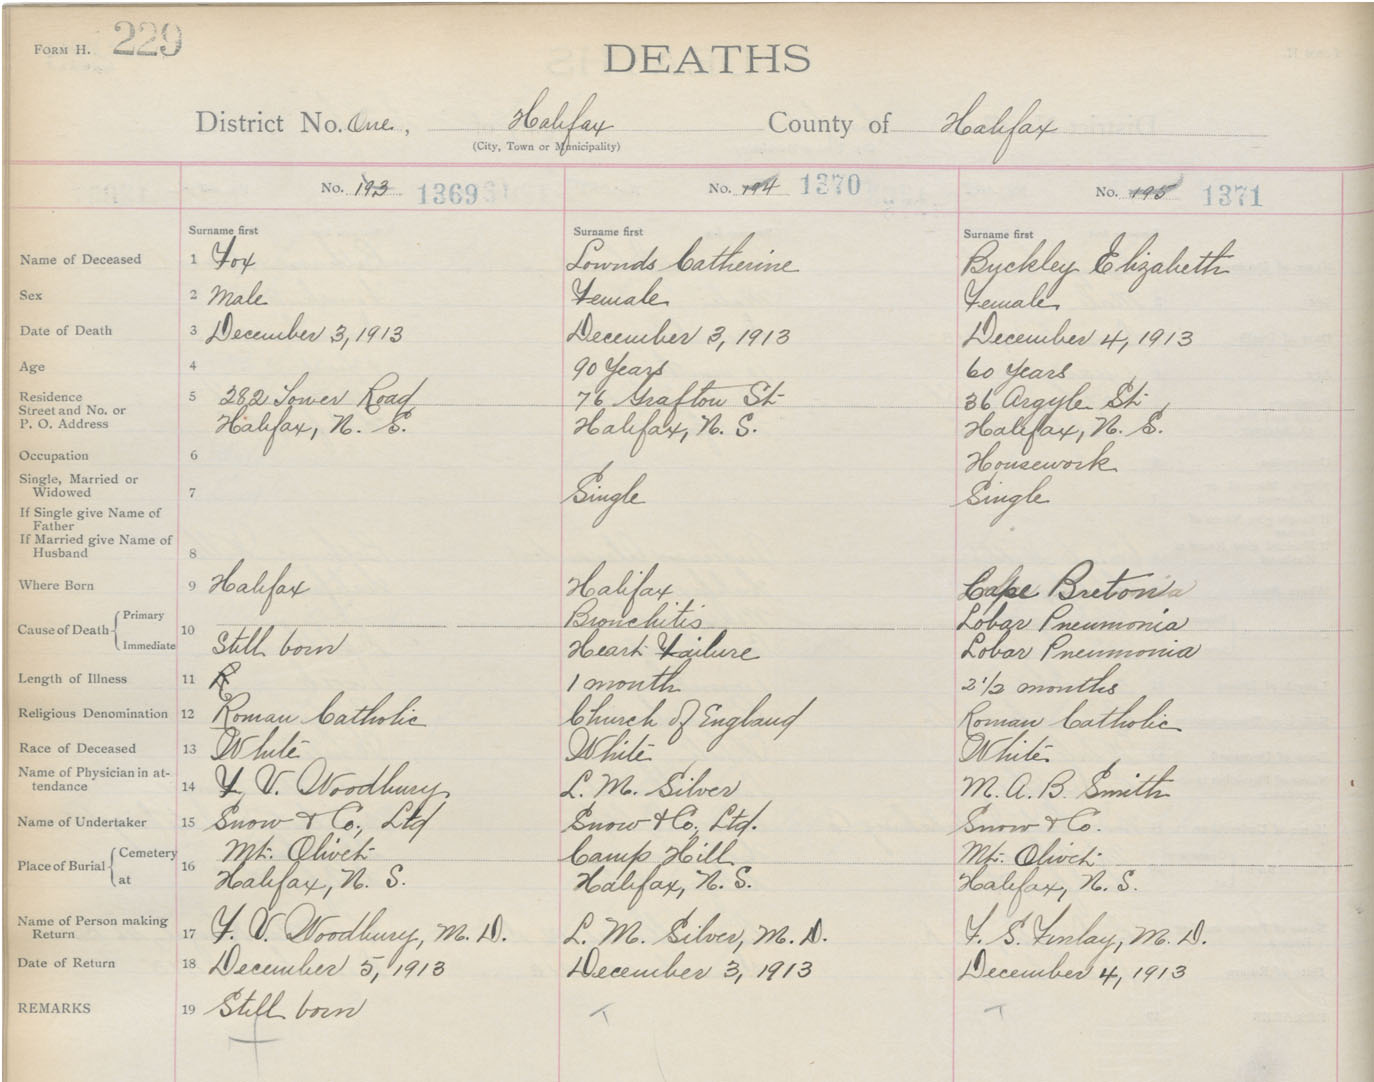 FORM H. 229
DEATHS
District No. One, Halifax County of Halifax
(City, Town or Municipality)
No. 193 1369 No. 194 1370 No. 195 1371
Surname first Surname first Surname first
Name of Deceased 1 Fox Lownds Catherine Buckley Elizabeth
Sex 2 Male Female Female
Date of Death 3 December 3, 1913 December 3, 1913 December 4, 1913
Age 4 90 Years 60 Years
Residence 5 282 Tower Road 76 Grafton St 36 Argyle St
Street and No. or
P. O. Address Halifax, N. S. Halifax, N. S. Halifax, N. S.
Occupation 6 Housework
Single, Married or
Widowed 7 Single Single
If Single give Name of
Father
If Married give Name of
Husband 8
Where Born 9 Halifax Halifax Cape Breton
Cause of Death Primary 10 Bronchitis Lobar Pneumonia
Immediate Still born Heart Failure Lobar Pneumonia
Length of Illness 11 R 1 month 2 1/2 months
Religious Denomination 12 Roman Catholic Church of England Roman Catholic
Race of Deceased 13 White White White
Name of Physician in at-
tendance 14 F. V. Woodbury L. M. Silver M. A. B. Smith
Name of Undertaker 15 Snow & Co., Ltd Snow & Co., Ltd. Snow & Co.
Place of Burial Cemetery 16 Mt. Olivet Camp Hill Mt. Olivet
at Halifax, N. S. Halifax, N. S. Halifax, N. S.
Name of Person making
Return 17 F. V. Woodbury, M. D. L. M. Silver, M. D. F. S. Finlay, M. D.
Date of Return 18 December 5, 1913 December 3, 1913 December 4, 1913
REMARKS 19 Still born